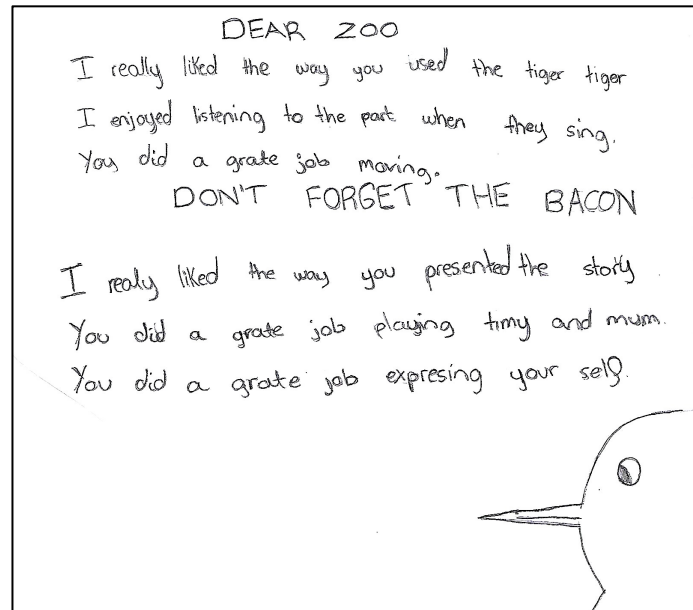 DEAR ZOO
I really liked the way you used the tiger tiger
I enjoyed listening to the part when they sing.
You did a grate job moving.
DON'T FORGET THE BACON
I realy liked the way you presented the story
You did a grate job playing timy and mum.
You did a grate job expresing your self.